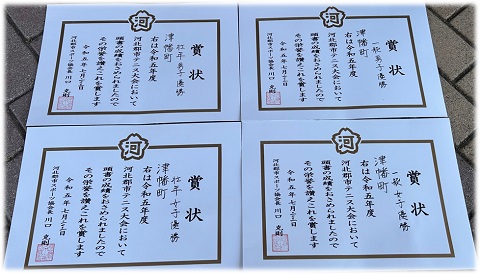 河
賞状
壮年男子優勝
津幡町
右は令和五年度
河北郡市テニス大会において
頭書の成績をおさめられましたので
その栄誉を讃えこれを賞します
令和五年七月二十三日
河北郡市スポーツ協会長 川口 克則
河
賞状
一般男子優勝
津幡町
右は令和五年度
河北郡市テニス大会において
頭書の成績をおさめられましたので
その栄誉を讃えこれを賞します
令和五年七月二十三日
河北郡市スポーツ協会長 川口 克則
河
賞状
壮年女子優勝
津幡町
右は令和五年度
河北郡市テニス大会において
頭書の成績をおさめられましたので
その栄誉を讃えこれを賞します
令和五年七月二十三日
河北郡市スポーツ協会長 川口 克則
河
賞状
一般女子優勝
津幡町
右は令和五年度
河北郡市テニス大会において
頭書の成績をおさめられましたので
その栄誉を讃えこれを賞します
令和五年七月二十三日
河北郡市スポーツ協会長 川口 克則